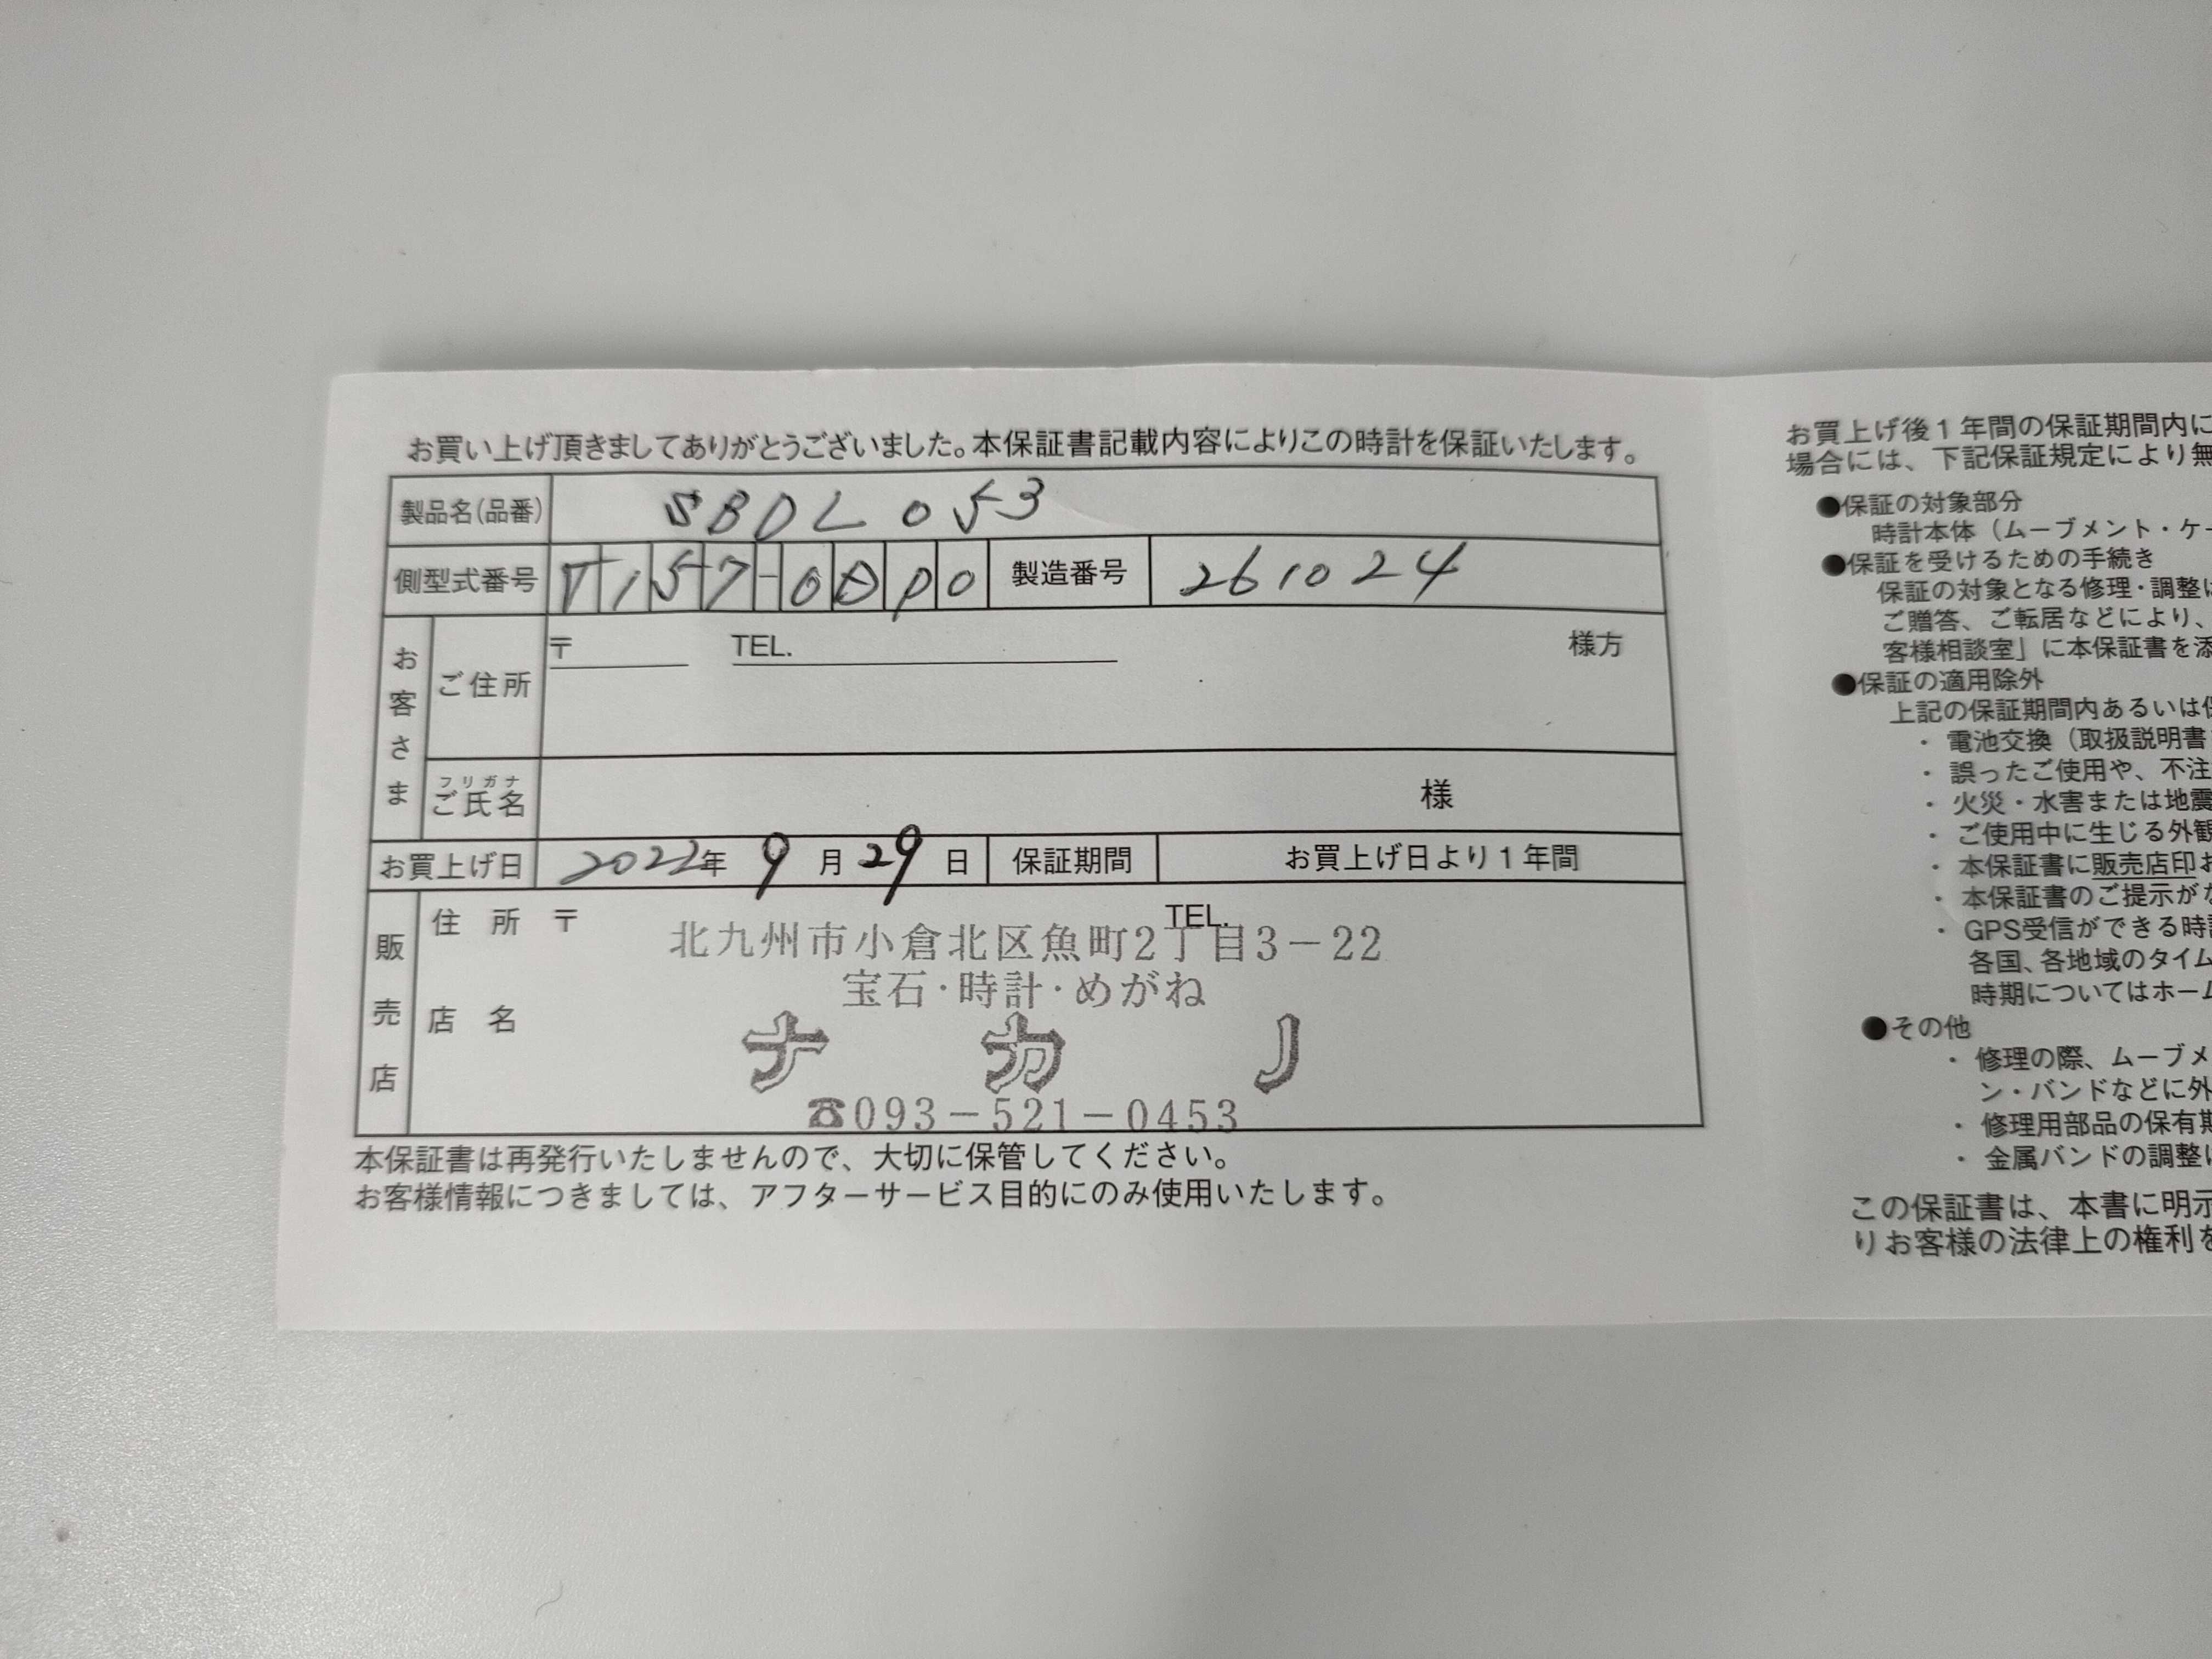 お買い上げ頂きましてありがとうございました。本保証書記載内容によりこの時計を保証いたします。
製品名(品番) SBDL053
側型式番号 V157-0DP0 製造番号 261024
お客さま
ご住所 〒 TEL. 様方
フリガナ
ご氏名 様
お買上げ日 2022年 9月 29日 保証期間 お買上げ日より1年間
販売店
住所 〒 TEL.
北九州市小倉北区魚町2丁目3-22
宝石・時計・めがね
店名 ナカノ
☎093-521-0453
本保証書は再発行いたしませんので、大切に保管してください。
お客様情報につきましては、アフターサービス目的にのみ使用いたします。
お買上げ後1年間の保証期間内に
場合には、下記保証規定により無
●保証の対象部分
時計本体（ムーブメント・ケー
●保証を受けるための手続き
保証の対象となる修理・調整は
ご贈答、ご転居などにより、
客様相談室」に本保証書を添
●保証の適用除外
上記の保証期間内あるいは保
・電池交換（取扱説明書
・誤ったご使用や、不注
・火災・水害または地震
・ご使用中に生じる外観
・本保証書に販売店印お
・本保証書のご提示がな
・GPS受信ができる時計
各国、各地域のタイム
時期についてはホーム
●その他
・修理の際、ムーブメ
ン・バンドなどに外
・修理用部品の保有期
・金属バンドの調整は
この保証書は、本書に明示
りお客様の法律上の権利を